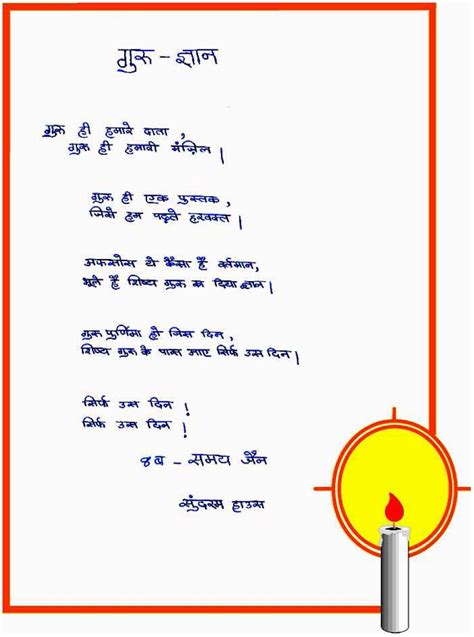 गुरु - ज्ञान
गुरु ही हमारे दाता,
गुरु ही हमारी मंज़िल।
गुरु ही एक पुस्तक,
जिसे हम पढ़ते हरवक्त।
अफसोस ये कैसा है वर्तमान,
भूले हैं शिष्य गुरु का दिया ज्ञान।
गुरु पूर्णिमा हो जिस दिन,
शिष्य गुरु के पास जाए सिर्फ उस दिन।
सिर्फ उस दिन!
सिर्फ उस दिन!
8ब - समय जैन
सुंदरम हाउस